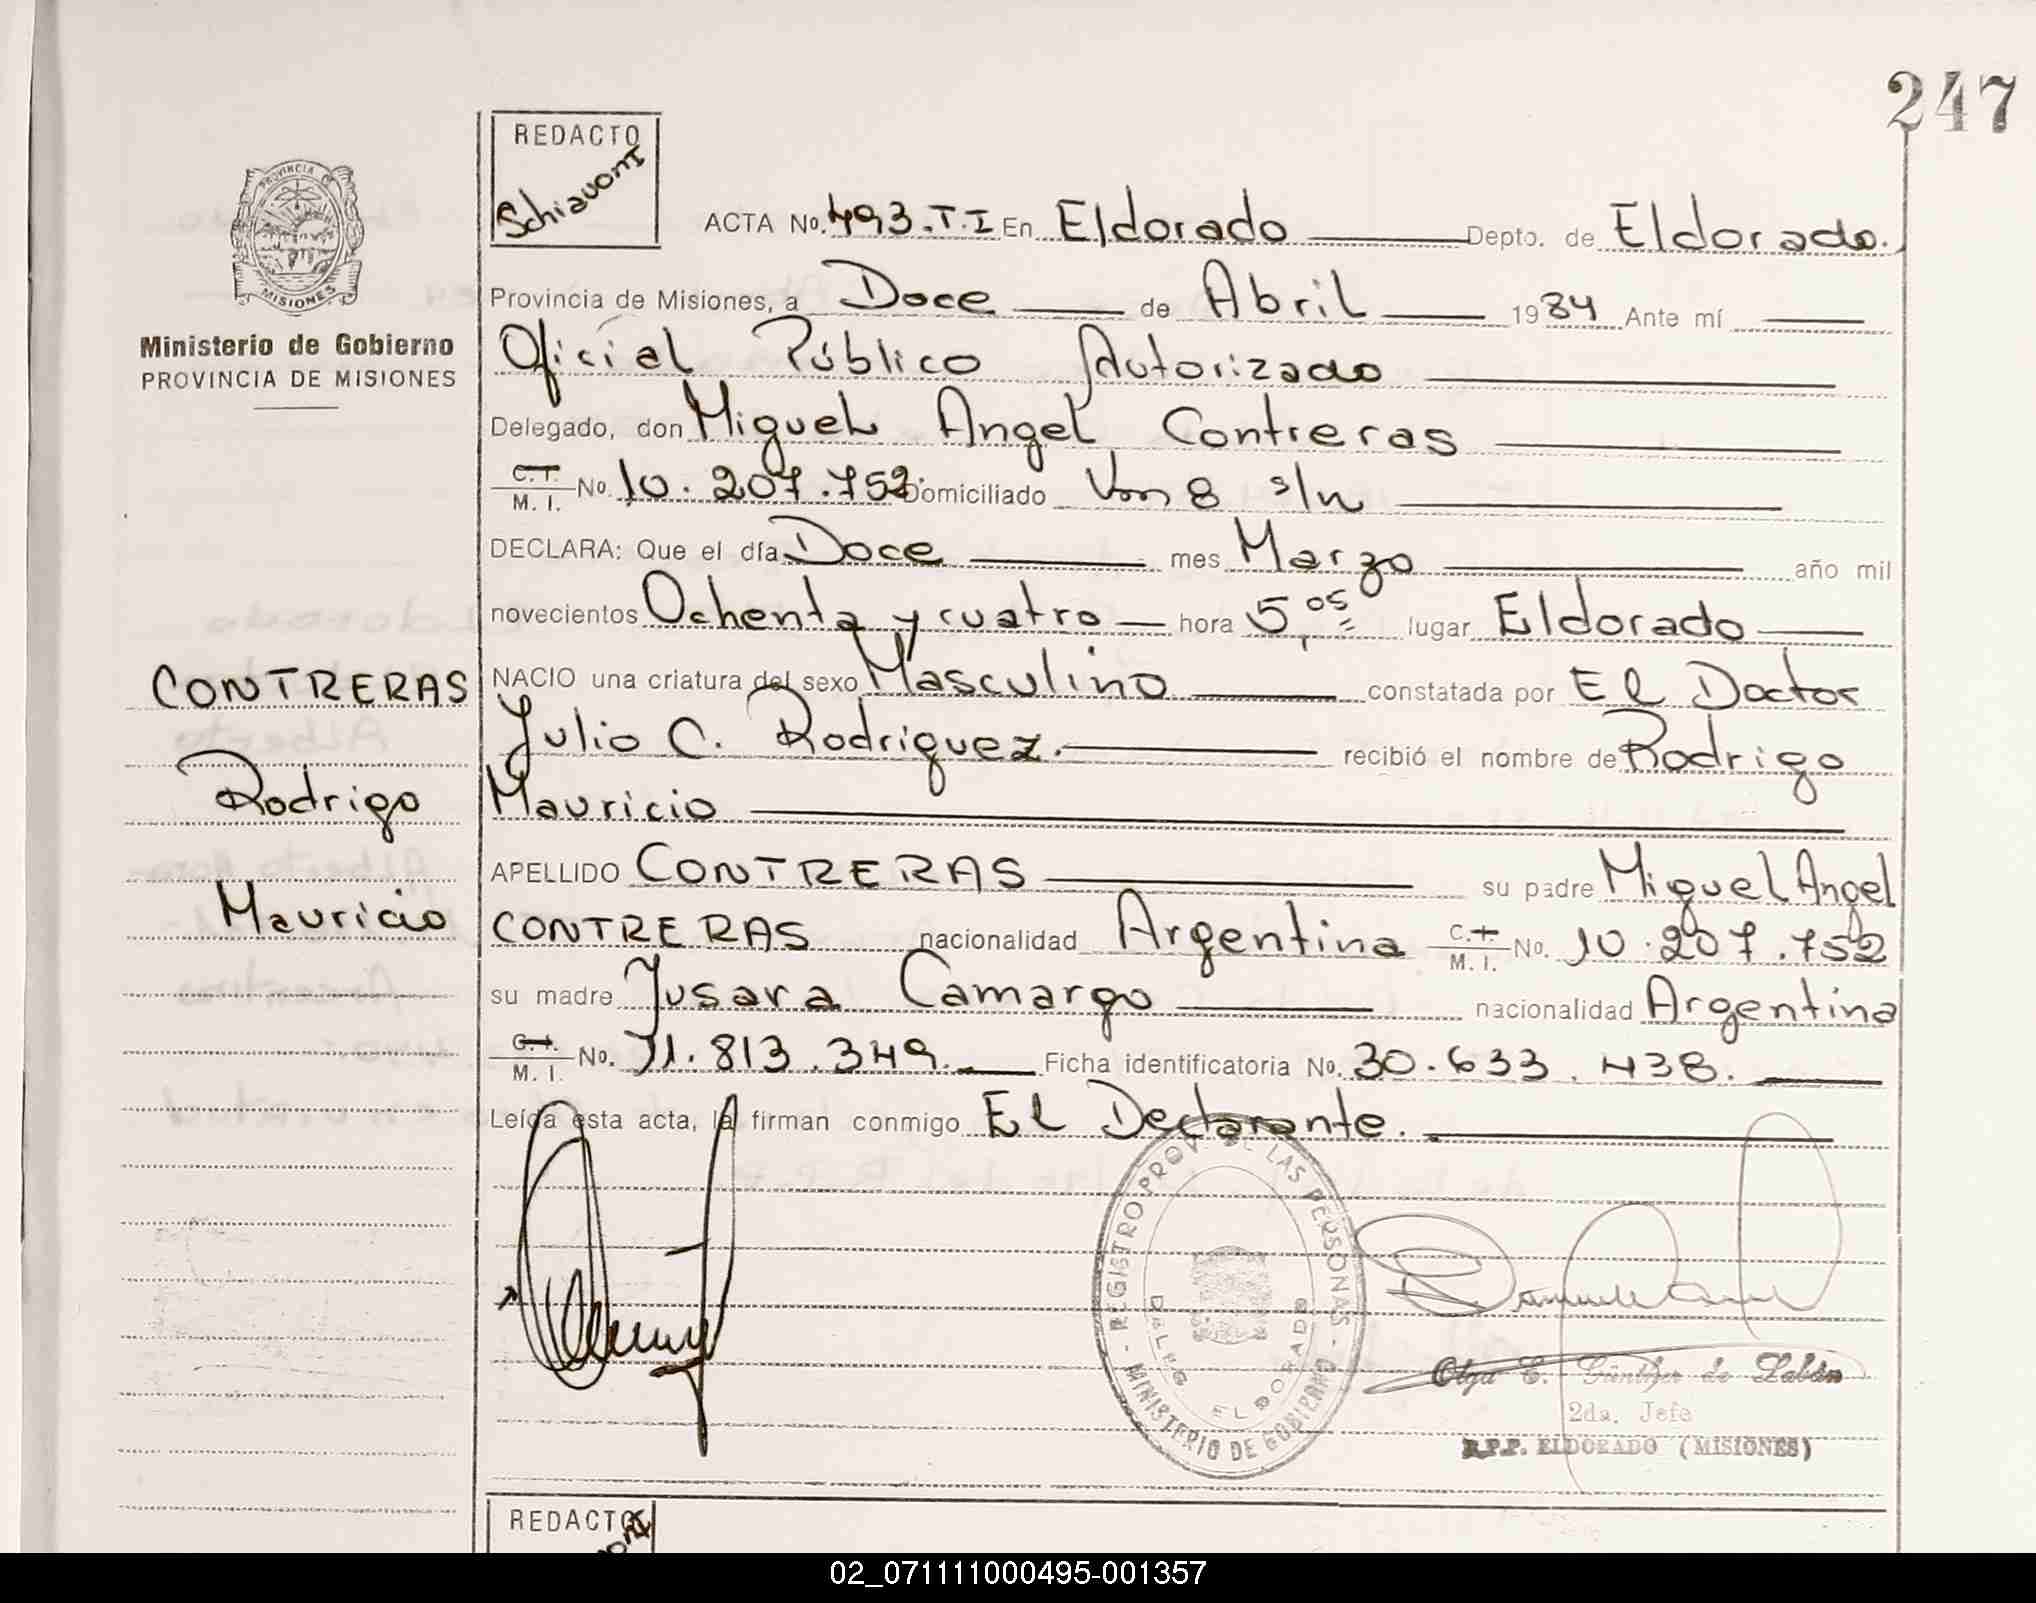 247
REDACTO
Schiavoni
PROVINCIA DE
MISIONES
Ministerio de Gobierno
PROVINCIA DE MISIONES
ACTA No. 493.T.I En Eldorado Depto. de Eldorado.
Provincia de Misiones, a Doce de Abril 1984 Ante mí
Oficial Público Autorizado
Delegado, don Miguel Angel Contreras
C.T. M. I. No. 10.207.752 Domiciliado Km 8 s/n
DECLARA: Que el día Doce mes Marzo año mil
novecientos Ochenta y cuatro hora 5,05 lugar Eldorado
NACIO una criatura del sexo Masculino constatada por El Doctor
Julio C. Rodriguez. recibió el nombre de Rodrigo
Mauricio
CONTRERAS
Rodrigo
Mauricio
APELLIDO CONTRERAS su padre Miguel Angel
CONTRERAS nacionalidad Argentina C.I. M. I. No. 10.207.752
su madre Jusara Camargo nacionalidad Argentina
C.I. M. I. No. 11.813.349. Ficha identificatoria No. 30.633.438.
Leída esta acta, la firman conmigo El Declarante.
REGISTRO PROV. DE LAS PERSONAS - MINISTERIO DE GOBIERNO -
DELEG. ELDORADO
Olga E. Günther de
2da. Jefe
R.P.P. ELDORADO (MISIONES)
REDACTO
02_071111000495-001357